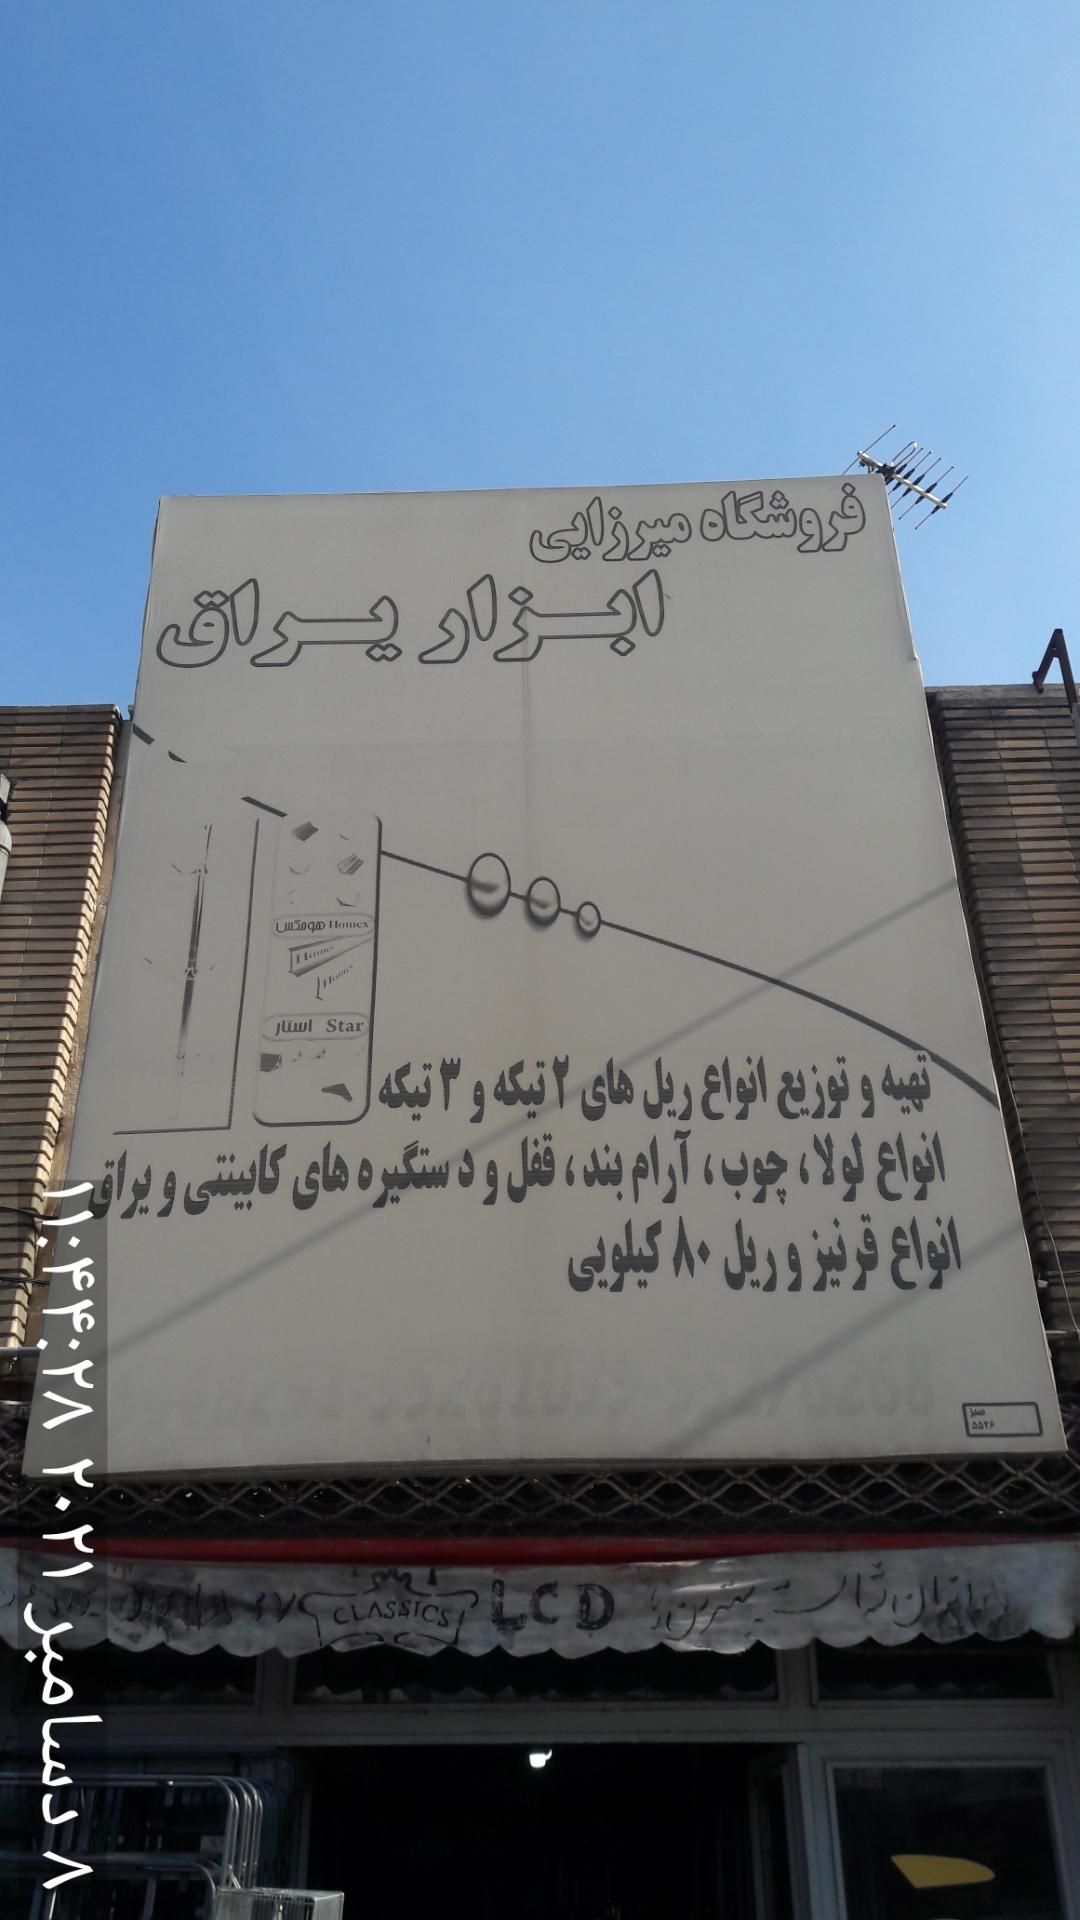 فروشگاه میرزایی
ابزار یراق
هومکس Homex
Homex
Homex
استار Star
تهیه و توزیع انواع ریل های ۲ تیکه و ۳ تیکه
انواع لولا ، چوب ، آرام بند ، قفل و دستگیره های کابینتی و یراق
انواع قرنیز و ریل ۸۰ کیلویی
سبز
۵۵۲۶
LCD CLASSICS
۸ دسامبر ۲۰۲۱ ۱۱:۰۴:۴۰.۲۸